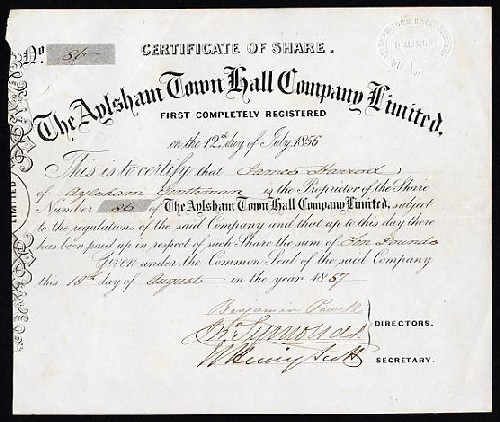 No. 86
CERTIFICATE OF SHARE.
The Aylsham Town Hall Company Limited,
FIRST COMPLETELY REGISTERED
on the 12th day of July 1855
This is to certify that James
of Aylsham Gentleman is the Proprietor of the Share
Number 86 of The Aylsham Town Hall Company Limited, subject
to the regulations of the said Company and that up to this day there
has been paid up in respect of such Share the sum of Ten Pounds
Given under the Common Seal of the said Company
this 13th day of August in the year 1857
Benjamin
DIRECTORS.
Wm Henry Scott
SECRETARY.
LIMITED